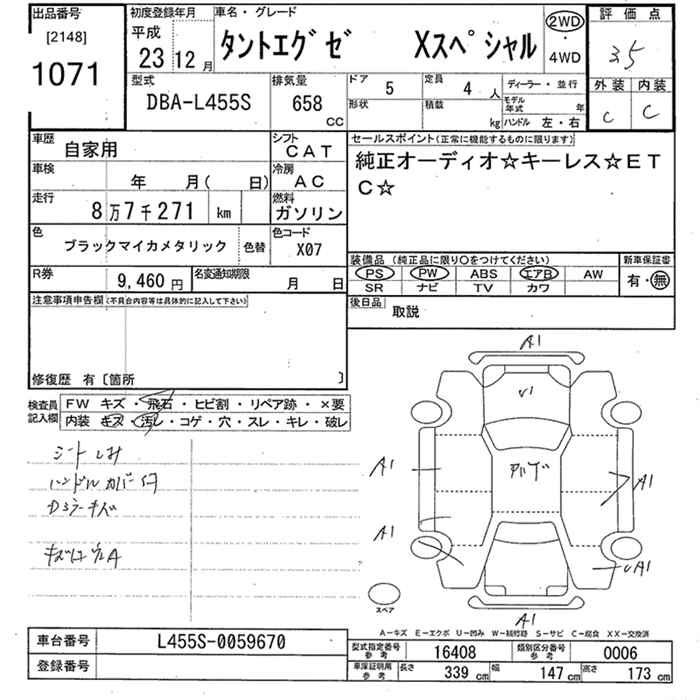 出品番号
[2148]
1071
初度登録年月
平成
23 12 月
車名・グレード
タントエグゼ Xスペシャル
2WD
・
4WD
評価点
3.5
外装 内装
C C
型式
DBA-L455S
排気量
658
CC
ドア 5
形状
定員 4 人
積載 kg
ディーラー・並行
モデル年式 年
ハンドル 左・右
車歴 自家用
シフト CAT
車検 年 月( 日)
冷房 AC
走行 8万7千271 km
燃料 ガソリン
色 ブラックマイカメタリック 色替
色コード X07
R券 9,460 円
名変通知期限 月 日
セールスポイント(正常に機能するものに限ります)
純正オーディオ☆キーレス☆ET
C☆
装備品 (純正品に限り○をつけてください)
PS PW ABS エアB AW
SR ナビ TV カワ
新車保証書
有・無
後日品 取説
注意事項申告欄(不具合内容等は具体的に記入して下さい)
修復歴 有〔箇所 〕
検査員記入欄
FW キズ・飛石・ヒビ割・リペア跡・×要
内装 キズ・汚レ・コゲ・穴・スレ・キレ・破レ
シートしみ
ハンドルカバー付
A1
V1
A1
A1
A1
A1
スペア
A1
A-キズ E-エクボ U-凹み W-補修跡 S-サビ C-腐食 XX-交換済
車台番号 L455S-0059670
登録番号
型式指定番号参考 16408
類別区分番号参考 0006
車庫証明用参考 長さ 339 cm 幅 147 cm 高さ 173 cm